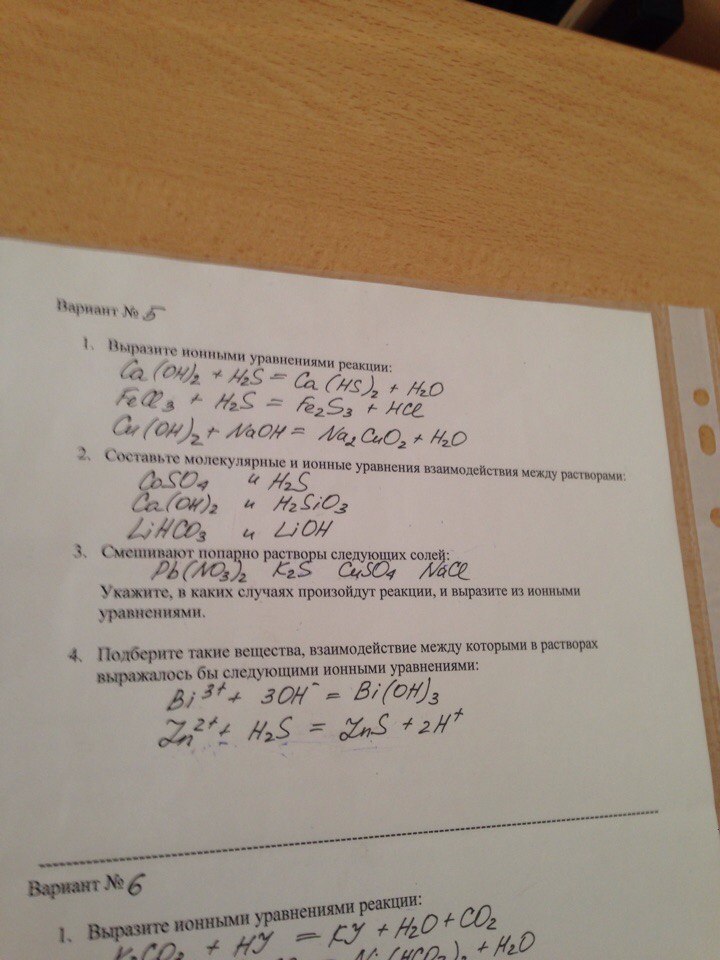 Вариант № 5
1. Выразите ионными уравнениями реакции:
Ca(OH)₂ + H₂S = Ca(HS)₂ + H₂O
FeCl₃ + H₂S = Fe₂S₃ + HCl
Cu(OH)₂ + NaOH = Na₂CuO₂ + H₂O
2. Составьте молекулярные и ионные уравнения взаимодействия между растворами:
CoSO₄ и H₂S
Ca(OH)₂ и H₂SiO₃
LiHCO₃ и LiOH
3. Смешивают попарно растворы следующих солей:
Pb(NO₃)₂ K₂S CuSO₄ NaCl
Укажите, в каких случаях произойдут реакции, и выразите из ионными
уравнениями.
4. Подберите такие вещества, взаимодействие между которыми в растворах
выражалось бы следующими ионными уравнениями:
Bi³⁺ + 3OH⁻ = Bi(OH)₃
Zn²⁺ + H₂S = ZnS + 2H⁺
Вариант № 6
1. Выразите ионными уравнениями реакции:
K₂CO₃ + HY = KY + H₂O + CO₂
Ni(HCO₃)₂ + H₂O